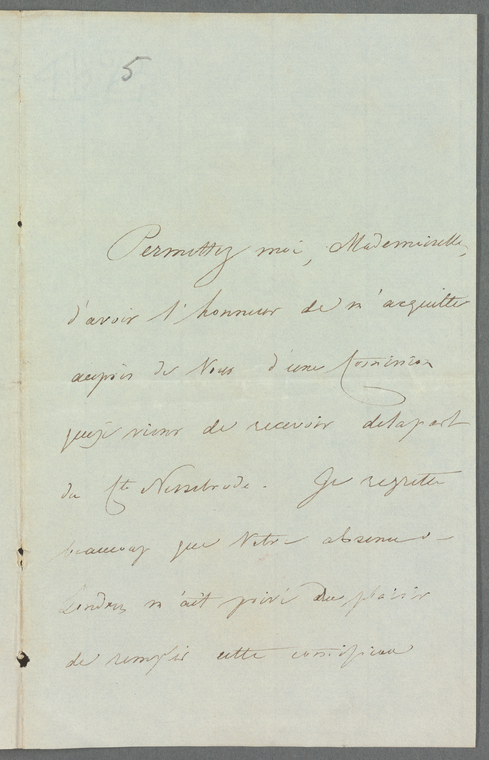 5
Permettez moi, Mademoiselle,
d'avoir l'honneur de m'acquitter
auprès de Vous d'une Commission
que je viens de recevoir de la part
du Cte Nesselrode. Je regrette
beaucoup que Votre absence
Londres m'ait privé du plaisir
de remplir cette commission